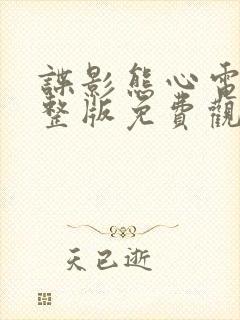 諜影態心電
整版免費觀
天已逝